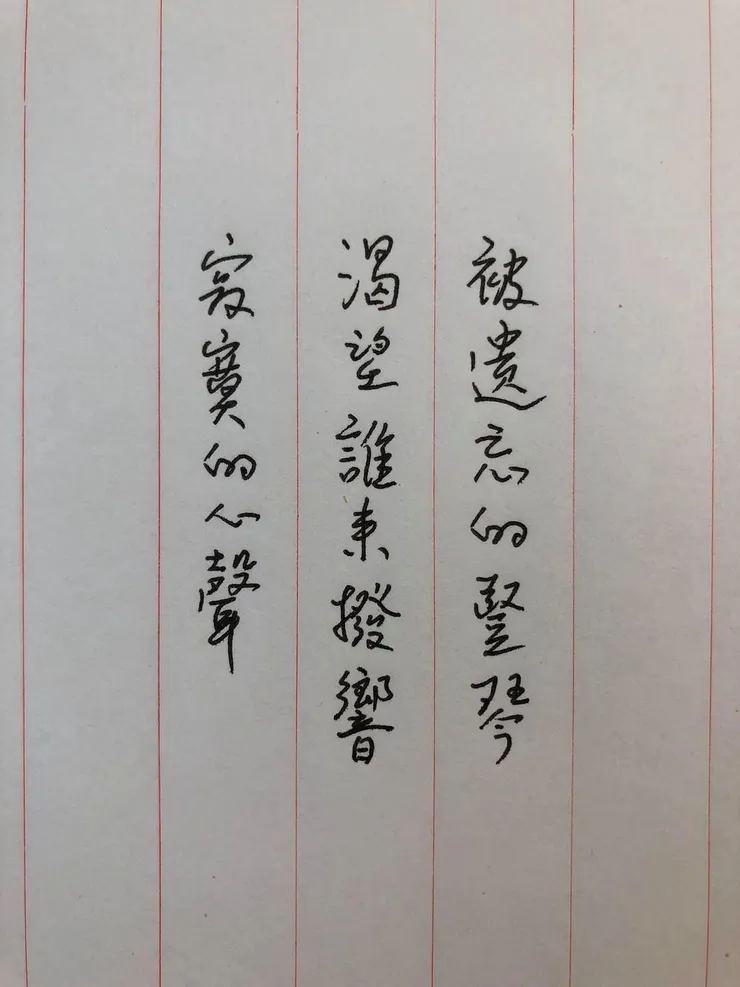 被遺忘的豎琴
渴望誰來撥響
寂寞的心聲